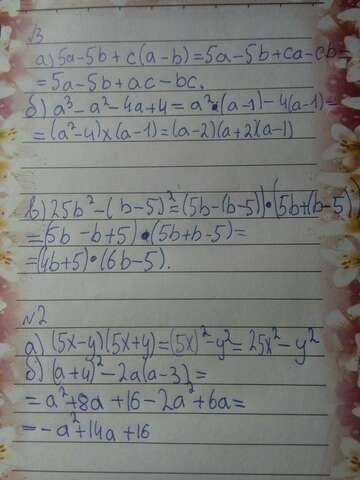 √3
а) 5a-5b+c(a-b)=5a-5b+ca-cb=
=5a-5b+ac-bc.
б) a³-a²-4a+4=a²·(a-1)-4(a-1)=
=(a²-4)×(a-1)=(a-2)(a+2)(a-1)
в) 25b²-(b-5)²=(5b-(b-5))·(5b+(b-5))
=(5b-b+5)·(5b+b-5)=
=(4b+5)·(6b-5).
№2
а) (5x-y)(5x+y)=(5x)²-y²=25x²-y²
б) (a+4)²-2a(a-3)=
=a²+8a+16-2a²+6a=
=-a²+14a+16